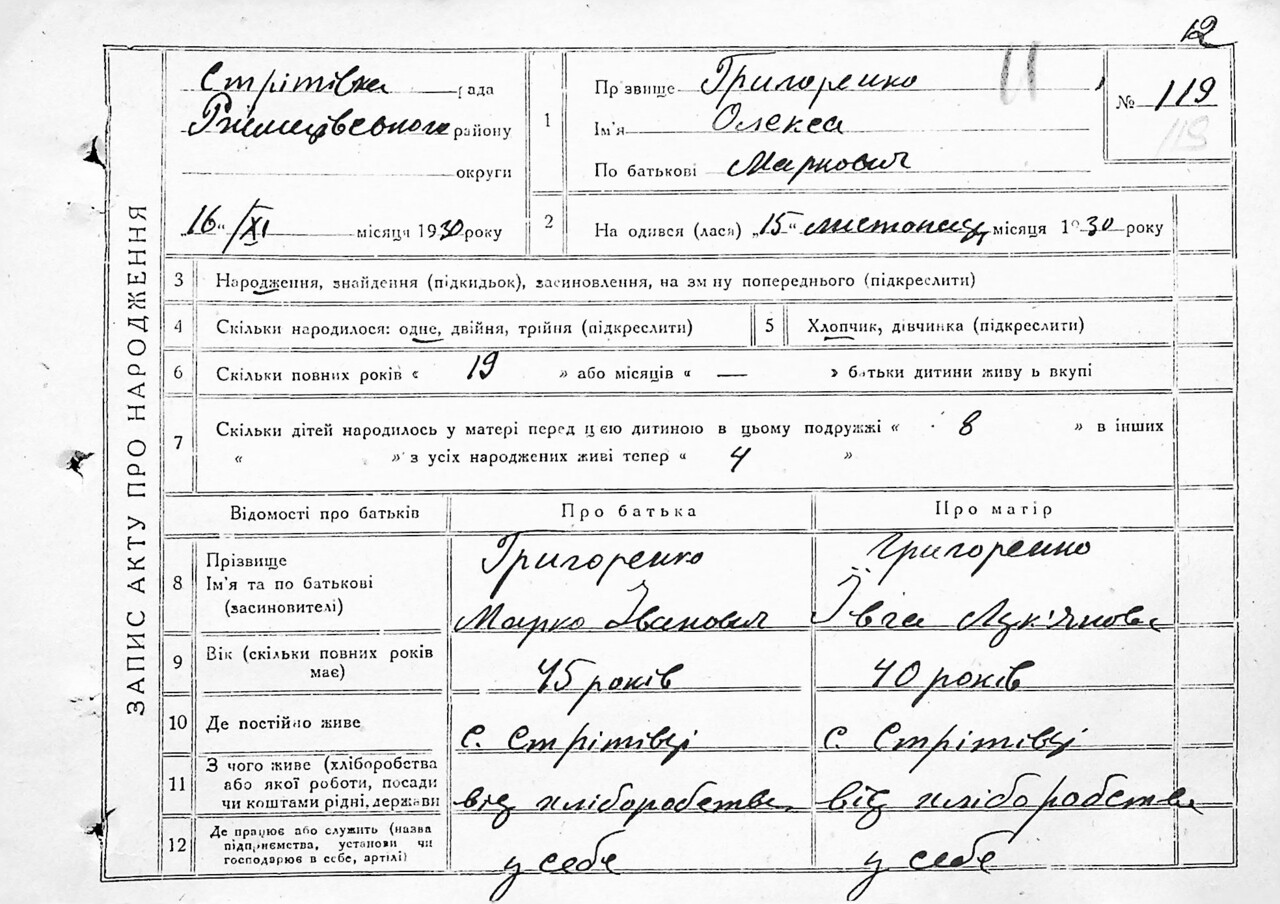 12
ЗАПИС АКТУ ПРО НАРОДЖЕННЯ
Стрітівка рада
Ржищівського району
округи
„16“/XI місяця 1930 року
1
Прізвище Григоренко
Ім'я Олекса
По батькові Маркович
№ 119
119
2 Народився (лася) „15“ листопада місяця 1930 року
3 Народження, знайдення (підкидьок), засиновлення, на зміну попереднього (підкреслити)
4 Скільки народилося: одне, двійня, трійня (підкреслити) 5 Хлопчик, дівчинка (підкреслити)
6 Скільки повних років « 19 » або місяців « — » батьки дитини живуть вкупі
7 Скільки дітей народилось у матері перед цією дитиною в цьому подружжі « 8 » в інших
« » з усіх народжених живі тепер « 4 »
Відомості про батьків Про батька Про матір
8 Прізвище
Ім'я та по батькові
(засиновителі)
Григоренко
Марко Іванович
Григоренко
Івга Лук'янова
9 Вік (скільки повних років
має)
45 років 40 років
10 Де постійно живе с. Стрітівці с. Стрітівці
11 З чого живе (хліборобства
або якої роботи, посади
чи коштами рідні, держави
від хліборобства від хліборобства
12 Де працює або служить (назва
підприємства, установи чи
господарює в себе, артілі)
у себе у себе